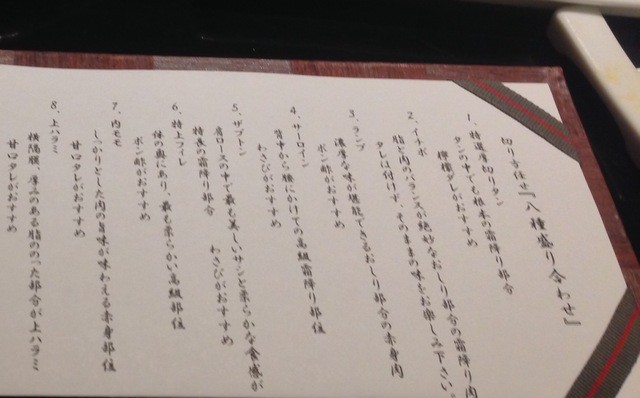 切り手任せ『八種盛り合わせ』
1、特選厚切りタン
タンの中でも根本の霜降り部分
檸檬ダレがおすすめ
2、イチボ
脂と肉のバランスが絶妙なおしり部分の霜降り肉
タレは付けず、そのままの味をお楽しみ下さい。
3、ランプ
濃厚な味が堪能できるおしり部分の赤身肉
ポン酢がおすすめ
4、サーロイン
背中から腰にかけての高級霜降り部位
わさびがおすすめ
5、ザブトン
肩ロースの中で最も美しいサシと柔らかな食感が
特長の霜降り部分 わさびがおすすめ
6、特上フィレ
体の奥にあり、最も柔らかい高級部位
ポン酢がおすすめ
7、内モモ
しっかりとした肉の旨味が味わえる赤身部位
甘口タレがおすすめ
8、上ハラミ
横隔膜、厚みのある脂ののった部分が上ハラミ
甘口タレがおすすめ